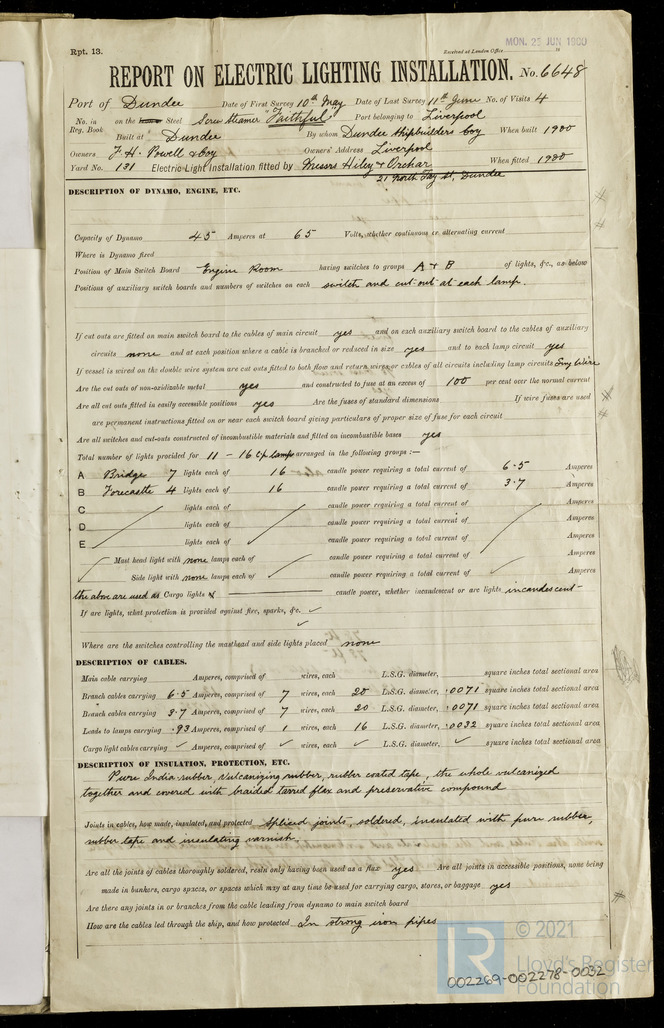 Rpt. 13.
Received at London Office
MON. 25 JUN 1900
REPORT ON ELECTRIC LIGHTING INSTALLATION. No. 6648
Port of Dundee Date of First Survey 10th May Date of Last Survey 11th June No. of Visits 4
No. in Reg. Book on the Steel Screw Steamer "Faithful" Port belonging to Liverpool
Built at Dundee By whom Dundee Shipbuilders Coy When built 1900
Owners F. H. Powell & Coy Owners' Address Liverpool
Yard No. 131 Electric Light Installation fitted by Messrs Hiley & Orchar When fitted 1900
21 North Tay St, Dundee
DESCRIPTION OF DYNAMO, ENGINE, ETC.
Capacity of Dynamo 45 Amperes at 65 Volts, whether continuous or alternating current
Where is Dynamo fixed
Position of Main Switch Board Engine Room having switches to groups A & B of lights, &c., as below
Positions of auxiliary switch boards and numbers of switches on each switch and cut-out at each lamp.
If cut outs are fitted on main switch board to the cables of main circuit yes and on each auxiliary switch board to the cables of auxiliary
circuits none and at each position where a cable is branched or reduced in size yes and to each lamp circuit yes
If vessel is wired on the double wire system are cut outs fitted to both flow and return wires or cables of all circuits including lamp circuits Sing Wire
Are the cut outs of non-oxidizable metal yes and constructed to fuse at an excess of 100 per cent over the normal current
Are all cut outs fitted in easily accessible positions yes Are the fuses of standard dimensions If wire fuses are used
are permanent instructions fitted on or near each switch board giving particulars of proper size of fuse for each circuit
Are all switches and cut-outs constructed of incombustible materials and fitted on incombustible bases yes
Total number of lights provided for 11 - 16 Cp lamps arranged in the following groups :—
A Bridge 7 lights each of 16 candle power requiring a total current of 6.5 Amperes
B Forecastle 4 lights each of 16 candle power requiring a total current of 3.7 Amperes
C lights each of candle power requiring a total current of Amperes
D lights each of candle power requiring a total current of Amperes
E lights each of candle power requiring a total current of Amperes
Mast head light with none lamps each of candle power requiring a total current of Amperes
Side light with none lamps each of candle power requiring a total current of Amperes
the above are used as Cargo lights of candle power, whether incandescent or arc lights incandescent
If arc lights, what protection is provided against fire, sparks, &c. ✓
✓
Where are the switches controlling the masthead and side lights placed none
DESCRIPTION OF CABLES.
Main cable carrying Amperes, comprised of wires, each L.S.G. diameter, square inches total sectional area
Branch cables carrying 6.5 Amperes, comprised of 7 wires, each 20 L.S.G. diameter, .0071 square inches total sectional area
Branch cables carrying 3.7 Amperes, comprised of 7 wires, each 20 L.S.G. diameter, .0071 square inches total sectional area
Leads to lamps carrying .93 Amperes, comprised of 1 wires, each 16 L.S.G. diameter, .0032 square inches total sectional area
Cargo light cables carrying ✓ Amperes, comprised of ✓ wires, each ✓ L.S.G. diameter, ✓ square inches total sectional area
DESCRIPTION OF INSULATION, PROTECTION, ETC.
Pure India-rubber, vulcanizing rubber, rubber coated tape, the whole vulcanized
together and covered with braided tarred flax and preservative compound
Joints in cables, how made, insulated, and protected spliced joints, soldered, insulated with pure rubber,
rubber tape and insulating varnish.
Are all the joints of cables thoroughly soldered, resin only having been used as a flux yes Are all joints in accessible positions, none being
made in bunkers, cargo spaces, or spaces which may at any time be used for carrying cargo, stores, or baggage yes
Are there any joints in or branches from the cable leading from dynamo to main switch board
How are the cables led through the ship, and how protected In strong iron pipes
LR © 2021
Lloyd's Register
Foundation
002269-002278-0032